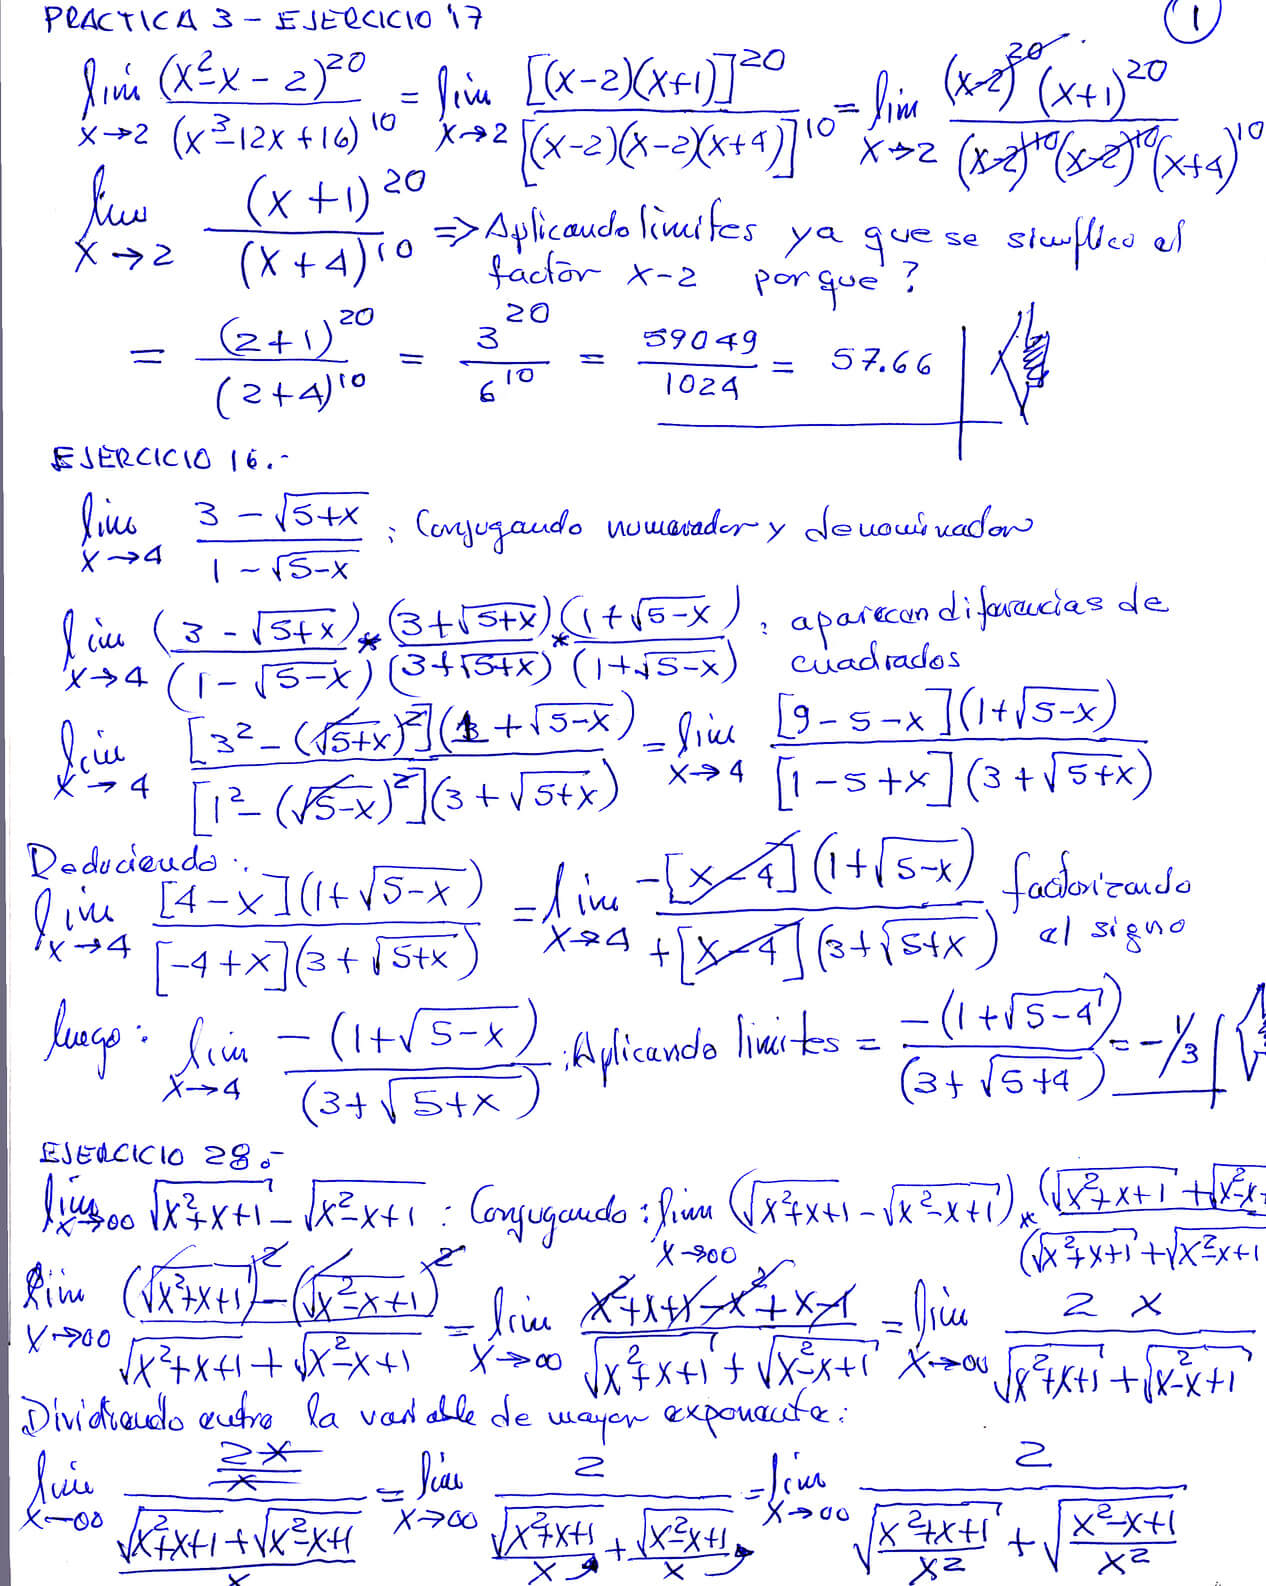 PRACTICA 3 - EJERCICIO 17 (1)
lim x→2 (x²-x-2)^20 / (x³-12x+16)^10 = lim x→2 [(x-2)(x+1)]^20 / [(x-2)(x-2)(x+4)]^10 = lim x→2 (x-2)^20 (x+1)^20 / (x-2)^10 (x-2)^10 (x+4)^10
lim x→2 (x+1)^20 / (x+4)^10 => Aplicando limites ya que se simplico el
factor x-2 por que?
= (2+1)^20 / (2+4)^10 = 3^20 / 6^10 = 59049 / 1024 = 57.66
EJERCICIO 16.-
lim x→4 (3 - √(5+x)) / (1 - √(5-x)) ; Conjugando numerador y denominador
lim x→4 (3 - √(5+x)) / (1 - √(5-x)) * (3+√(5+x)) / (3+√(5+x)) * (1+√(5-x)) / (1+√(5-x)) ; aparecen diferencias de
cuadrados
lim x→4 [3² - (√(5+x))²](1+√(5-x)) / [1² - (√(5-x))²](3+√(5+x)) = lim x→4 [9-5-x](1+√(5-x)) / [1-5+x](3+√(5+x))
Deduciendo:
lim x→4 [4-x](1+√(5-x)) / [-4+x](3+√(5+x)) = lim x→4 -[x-4](1+√(5-x)) / +[x-4](3+√(5+x)) factorizando
el signo
luego: lim x→4 -(1+√(5-x)) / (3+√(5+x)) ; Aplicando limites = -(1+√(5-4)) / (3+√(5+4)) = -1/3
EJERCICIO 28.-
lim x→∞ √(x²+x+1) - √(x²-x+1) : Conjugando: lim x→∞ (√(x²+x+1) - √(x²-x+1)) * (√(x²+x+1) + √(x²-x+ / (√(x²+x+1) + √(x²-x+1
lim x→∞ (√(x²+x+1))² - (√(x²-x+1))² / √(x²+x+1) + √(x²-x+1) = lim x→∞ x²+x+1-x²+x-1 / √(x²+x+1) + √(x²-x+1) = lim x→∞ 2x / √(x²+x+1) + √(x²-x+1)
Dividiendo entre la variable de mayor exponente:
lim x→∞ (2x/x) / ((√(x²+x+1) + √(x²-x+1))/x) = lim x→∞ 2 / (√(x²+x+1)/x + √(x²-x+1)/x) = lim x→∞ 2 / (√((x²+x+1)/x²) + √((x²-x+1)/x²))